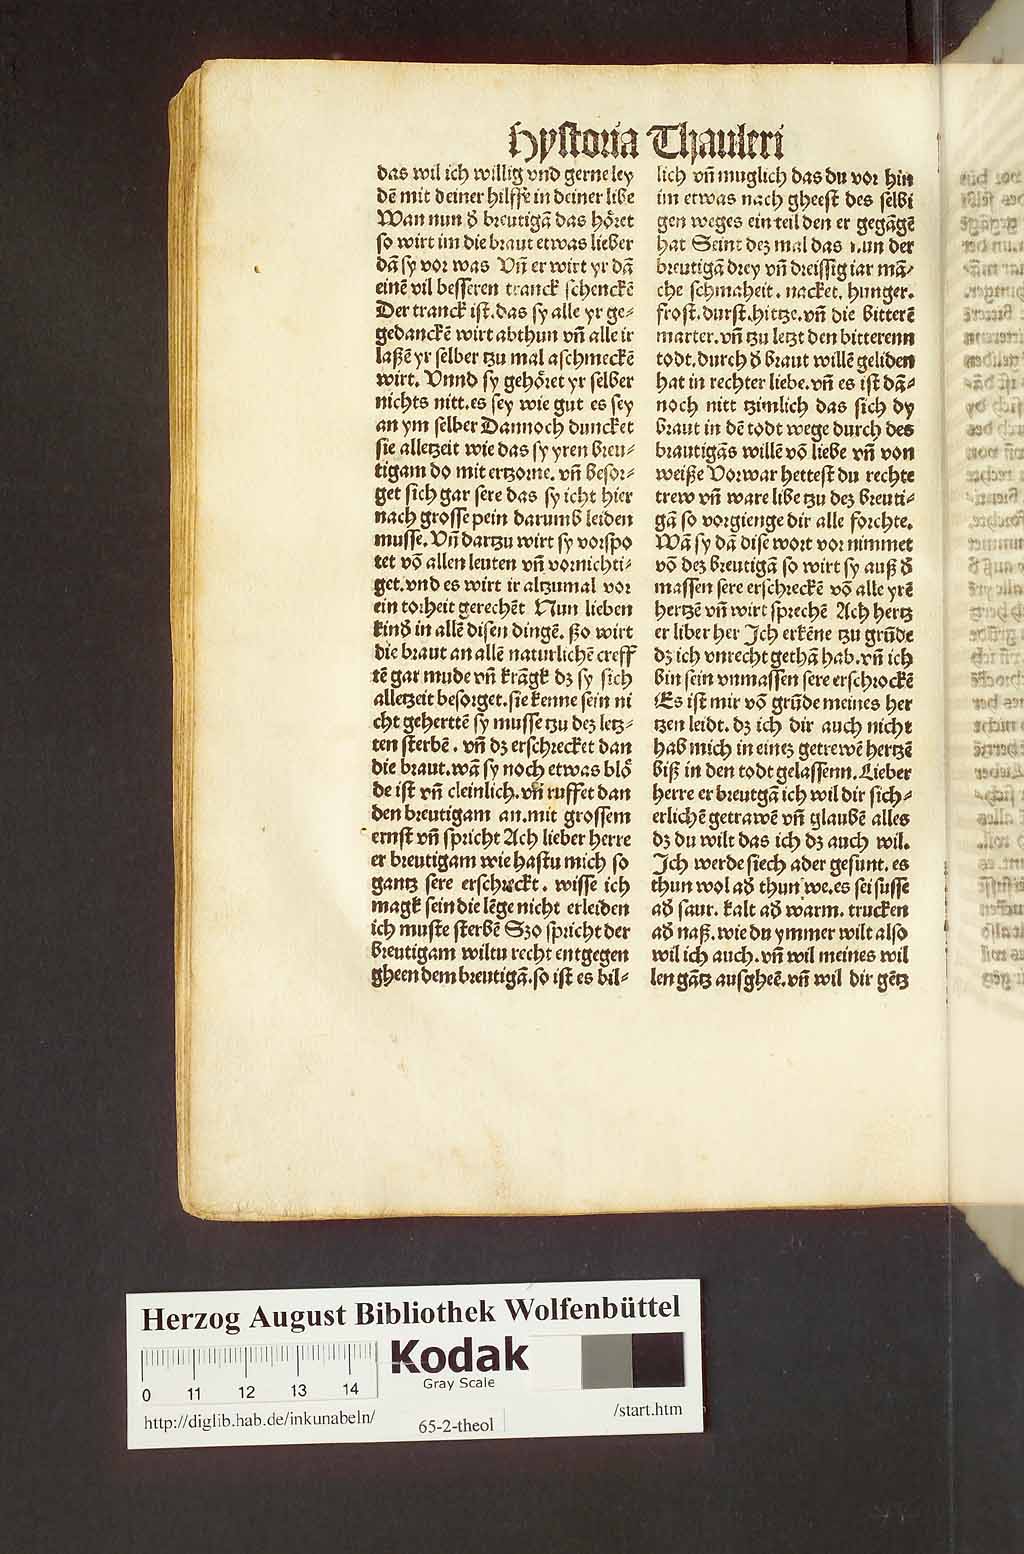 Hystoria Thauleri
das wil ich willig vnd gerne ley
dē mit deiner hilffe in deiner libe
Wan nun d̕ breutigā das hoͤret
so wirt im die braut etwas lieber
dā sy vor was Vn̄ er wirt yr dā
einē vil besseren tranck schenckē
Der tranck ist. das sy alle yr ge⸗
gedanckē wirt abthun vn̄ alle ir
laßē yr selber tzu mal aschmeckē
wirt. Vnnd sy gehoͤret yr selber
nichts nitt. es sey wie gut es sey
an ym selber Dannoch duncket
sie alletzeit wie das sy yren breu⸗
tigam do mit ertzorne. vn̄ besor⸗
get sich gar sere das sy icht hier
nach grosse pein darumb leiden
musse. Vn̄ dartzu wirt sy vorspo
tet vō allen leuten vn̄ vornichti⸗
get. vnd es wirt ir altzumal vor
ein torheit gerechēt Nun lieben
kind in allē disen dingē. ßo wirt
die braut an allē naturlichē creff
tē gar mude vn̄ krāgk dz sy sich
alletzeit besorget. sie kenne sein ni
cht gehertte͂ sy musse tzu dez letz⸗
ten sterbē. vn̄ dz erschrecket dan
die braut. wā sy noch etwas bloͤ
de ist vn̄ cleinlich. vn̄ ruffet dan
den breutigam an. mit grossem
ernst vn̄ spricht Ach lieber herre
er breutigam wie hastu mich so
gantz sere erschreckt. wisse ich
magk sein die lēge nicht erleiden
ich muste sterbē Szo spricht der
breutigam wiltu recht entgegen
gheen dem breutigā. so ist es bil⸗
lich vn̄ muglich das du vor hin
im etwas nach gheest des selbi
gen weges ein teil den er gegāgē
hat Seint dez mal das nun der
breutigā drey vn̄ dreissig iar mā⸗
che schmaheit. nacket. hunger.
frost. durst. hittze. vn̄ die bitterē
marter. vn̄ tzu letzt den bitterenn
todt. durch d̕ braut willē geliden
hat in rechter liebe. vn̄ es ist dā⸗
noch nitt tzimlich das sich dy
braut in dē todt wege durch des
brautigās willē vō liebe vn̄ von
weiße Vorwar hettest du rechte
trew vn̄ ware libe tzu dez breuti⸗
gā so vorgienge dir alle forchte.
Wā sy dā dise wort vor nimmet
vō dez breutigā so wirt sy auß d̕
massen sere erschreckē vō alle yrē
hertzē vn̄ wirt sprechē Ach hertz
er liber her Ich erkēne tzu grūde
dz ich vnrecht gethā hab. vn̄ ich
bin sein vnmassen sere erschrockē
Es ist mir vō grūde meines her
tzen leidt. dz ich dir auch nicht
hab mich in einez getrewē hertzē
biß in den todt gelassenn. Lieber
herre er breutgā ich wil dir sich⸗
erlichē getrawē vn̄ glaubē alles
dz du wilt das ich dz auch wil.
Ich werde siech ader gesunt. es
thun wol ad̕ thun we. es sei susse
ad̕ saur. kalt ad̕ warm. trucken
ad̕ naß. wie du ymmer wilt also
wil ich auch. vn̄ wil meines wil
len gātz ausgheē. vn̄ wil dir gētz
Herzog August Bibliothek Wolfenbüttel
Kodak
Gray Scale
0 11 12 13 14
http://diglib.hab.de/inkunabeln/
65-2-theol
/start.htm